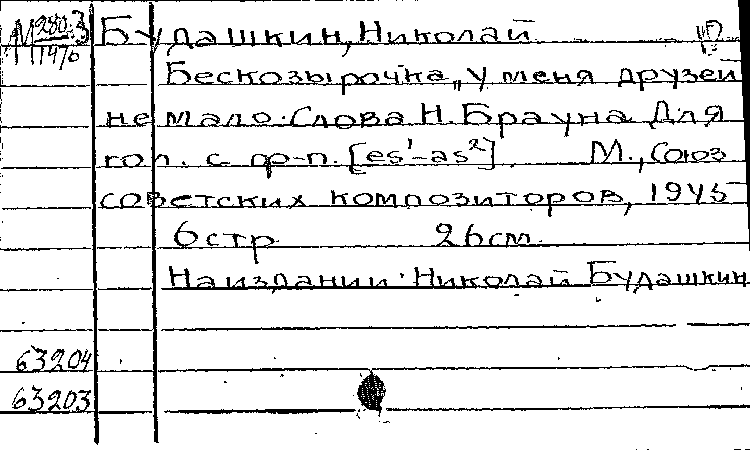 М 280.3
1476
Будашкин, Николай
Бескозырочка „У меня друзей
не мало. Слова Н. Брауна Для
гол. с ф-п. [es¹-as²]. М., Союз
советских композиторов, 1945
6 стр. 26 см.
На издании: Николай Будашкин
63204
63203